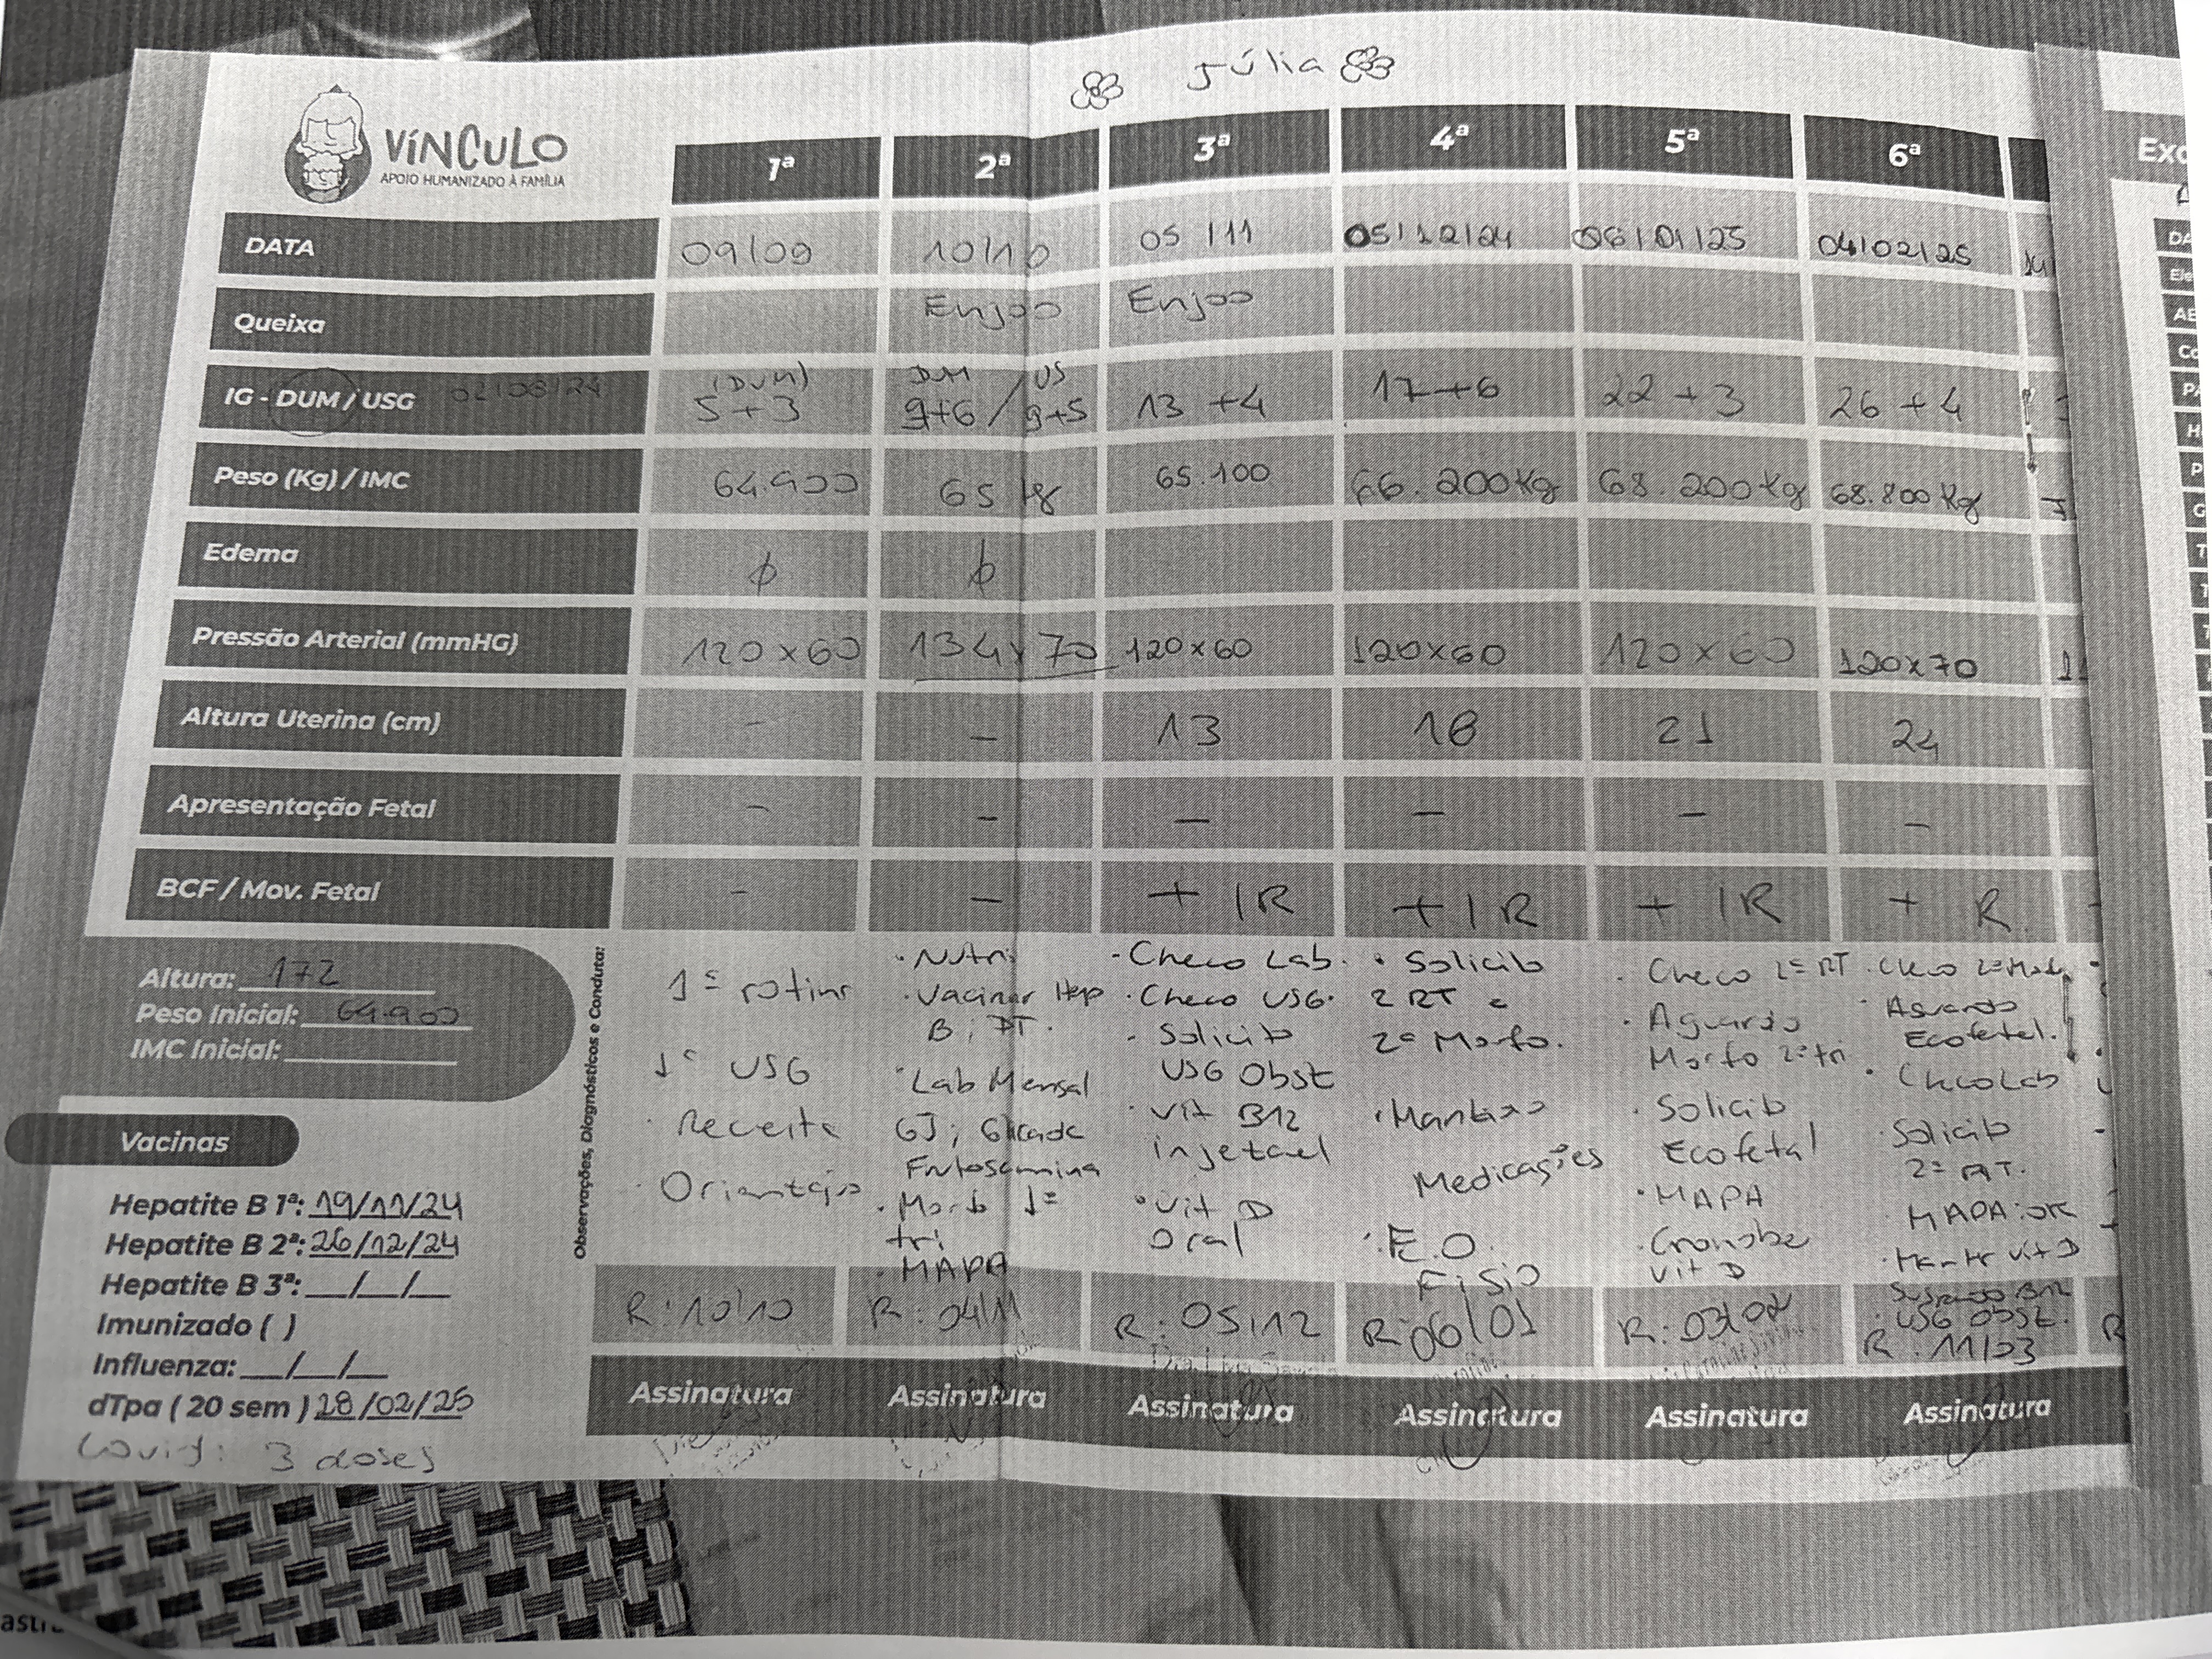 Júlia
VÍNCULO
APOIO HUMANIZADO À FAMÍLIA
1ª 2ª 3ª 4ª 5ª 6ª
Exa
DATA 09/09 10/10 05/11 05/12/24 06/01/25 04/02/25
Queixa Enjoo Enjoo
(DUM) DUM / US
IG - DUM / USG 02/08/24 5+3 9+6 / 9+5 13+4 17+6 22+3 26+4
Peso (Kg) / IMC 64.900 65 kg 65.100 66.200Kg 68.200Kg 68.800Kg
Edema ϕ ϕ
Pressão Arterial (mmHG) 120x60 134x70 120x60 120x60 120x60 120x70
Altura Uterina (cm) - - 13 18 21 24
Apresentação Fetal - - - - - -
BCF / Mov. Fetal - - + / R + / R + / R + R
Altura: 172
Peso Inicial: 64.900
IMC Inicial:
Vacinas
Hepatite B 1ª: 19/11/24
Hepatite B 2ª: 26/12/24
Hepatite B 3ª: __/__/__
Imunizado ( )
Influenza: __/__/__
dTpa ( 20 sem ) 28/02/25
Covid: 3 doses
Observações, Diagnósticos e Conduta:
1ª rotina
1º USG
· Receita
· Orientação
R: 10/10
· Nutri
· Vacinar Hep
B; DT.
· Lab Mensal
GJ;
Frutosamina
· Morfo 1º
tri
· MAPA
R: 04/11
· Checo Lab.
· Checo USG.
· Solicito
USG Obst
· Vit B12
injetavel
· Vit D
oral
R: 05/12
· Solicito
2 RT e
2º Morfo.
· Mantenho
Medicações
· E.O.
Fisio
R: 06/01
· Checo 2ª RT
· Aguardo
Morfo 2º tri
· Solicito
Ecofetal
· MAPA
Vit D
R: 03/02
· Checo 2º Morfo
· Aguardo
Ecofetal.
· Checo Lab
· Solicito
MAPA: OK
· Manter Vit D
Suspendo B12
· USG Obst.
R: 11/03
Assinatura Assinatura Assinatura Assinatura Assinatura Assinatura